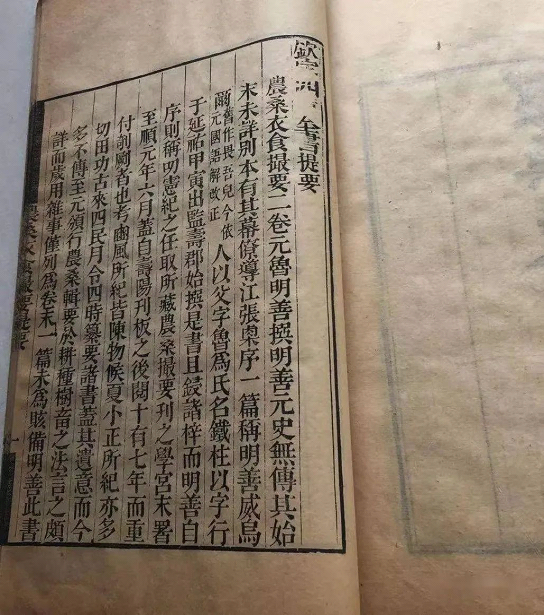 欽定四全書提要
農桑衣食撮要二卷元魯明善撰明善元史無傳其始
末未詳別本有其幕僚導江張㮚序一篇稱明善威烏
爾舊作畏吾兒今依元國語解改正人以父字魯爲氏名鐵柱以字行
于延祐甲寅出監壽郡始撰是書且鋟諸梓而明善自
序則稱叨憲紀之任取所藏農桑撮要刊之學宮末署
至順元年六月蓋自壽陽刊板之後閱十有七年而重
付剞劂者也考豳風所紀皆陳物候夏小正所紀亦多
切田功古來四民月令四時纂要諸書蓋其遺意而今
多不傳至元頒行農桑輯要於耕種樹畜之法言之頗
詳而歲用雜事僅列爲卷末一篇未爲賅備明善此書
農桑衣食撮要提要